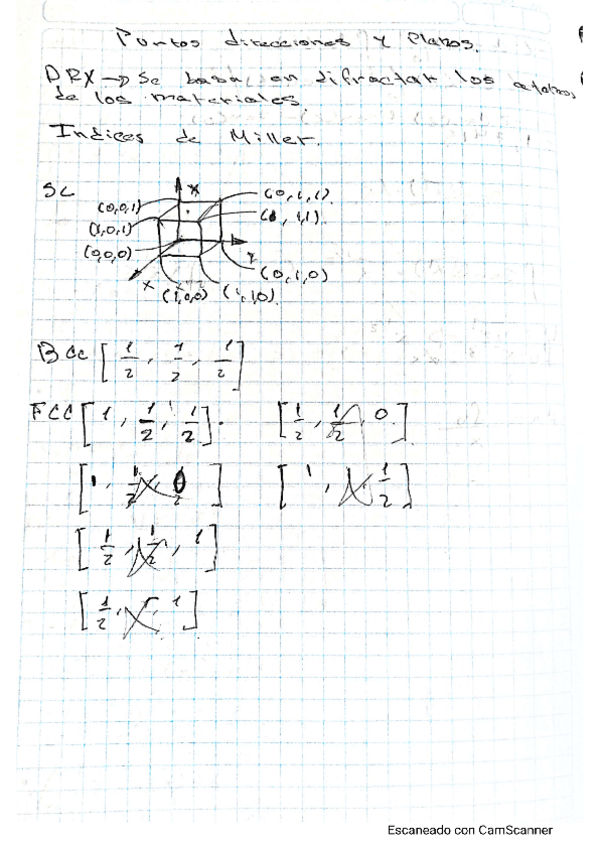 Puntos direcciones y Planos.
DRX → Se basa en difractar los atomos
de los materiales.
Indices de Miller.
SC
(0,0,1)
(1,0,1)
(0,0,0)
(0,1,1)
(1,1,1)
(0,1,0)
x
y
(1,0,0) (1,1,0)
BCC [1/2, 1/2, 1/2]
FCC [1, 1/2, 1/2]. [1/2, 1/2, 0]
[1/2, 1/2, 1]
Escaneado con CamScanner